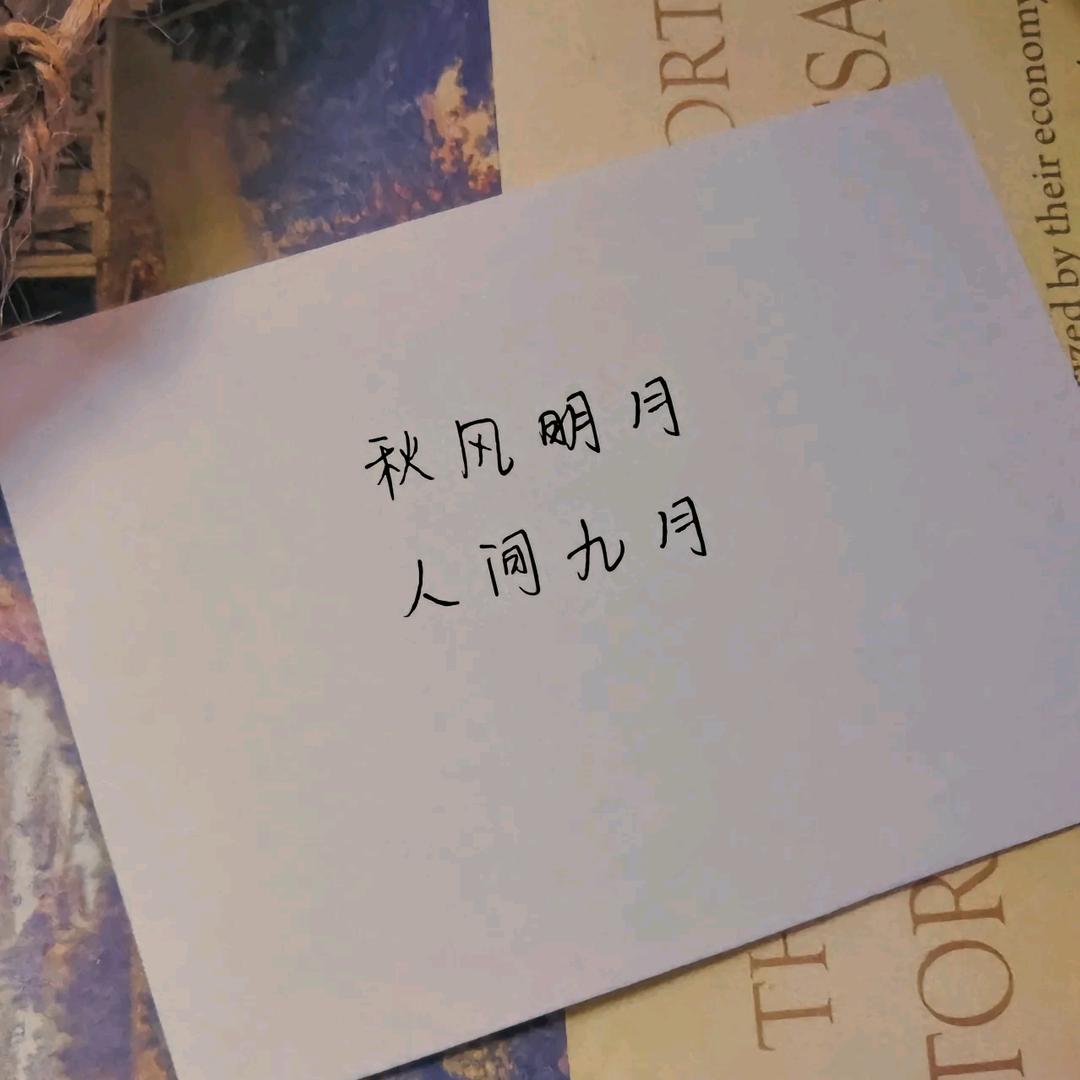 秋风明月
人间九月
ORT
SA
zed by their economy
TH
TOR